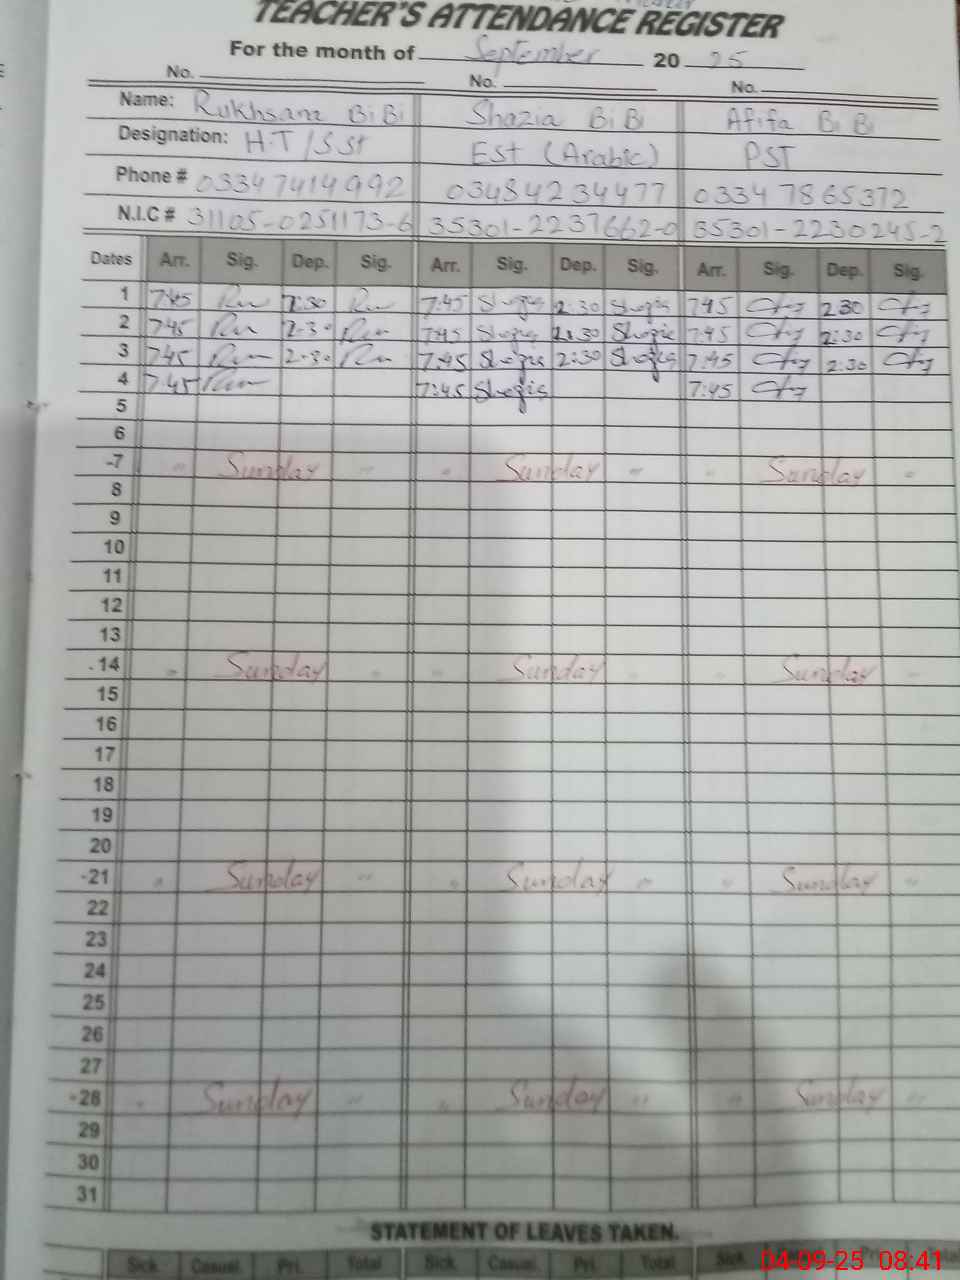 TEACHER'S ATTENDANCE REGISTER
For the month of September 20 25
No. No. No.
Name: Rukhsana BiBi Shazia BiBi Afifa BiBi
Designation: H.T/S.St Est (Arabic) PST
Phone # 03347414992 03484234477 03347865372
N.I.C # 31105-0251173-6 35301-2237662-0 35301-2230245-2
Dates Arr. Sig. Dep. Sig. Arr. Sig. Dep. Sig. Arr. Sig. Dep. Sig.
1 7:45 2:30 7:45 2:30 7:45 2:30
2 7:45 2:30 7:45 2:30 7:45 2:30
3 7:45 2:30 7:45 2:30 7:45 2:30
4 7:45 7:45 7:45
5
6
7 " Sunday " " Sunday " " Sunday "
8
9
10
11
12
13
14 " Sunday " " Sunday " " Sunday "
15
16
17
18
19
20
21 " Sunday " " Sunday " " Sunday "
22
23
24
25
26
27
28 " Sunday " " Sunday " " Sunday "
29
30
31
STATEMENT OF LEAVES TAKEN.
Sick Casual. Pri. Total Sick Casual. Pri. Total Sick
04-09-25 08:41